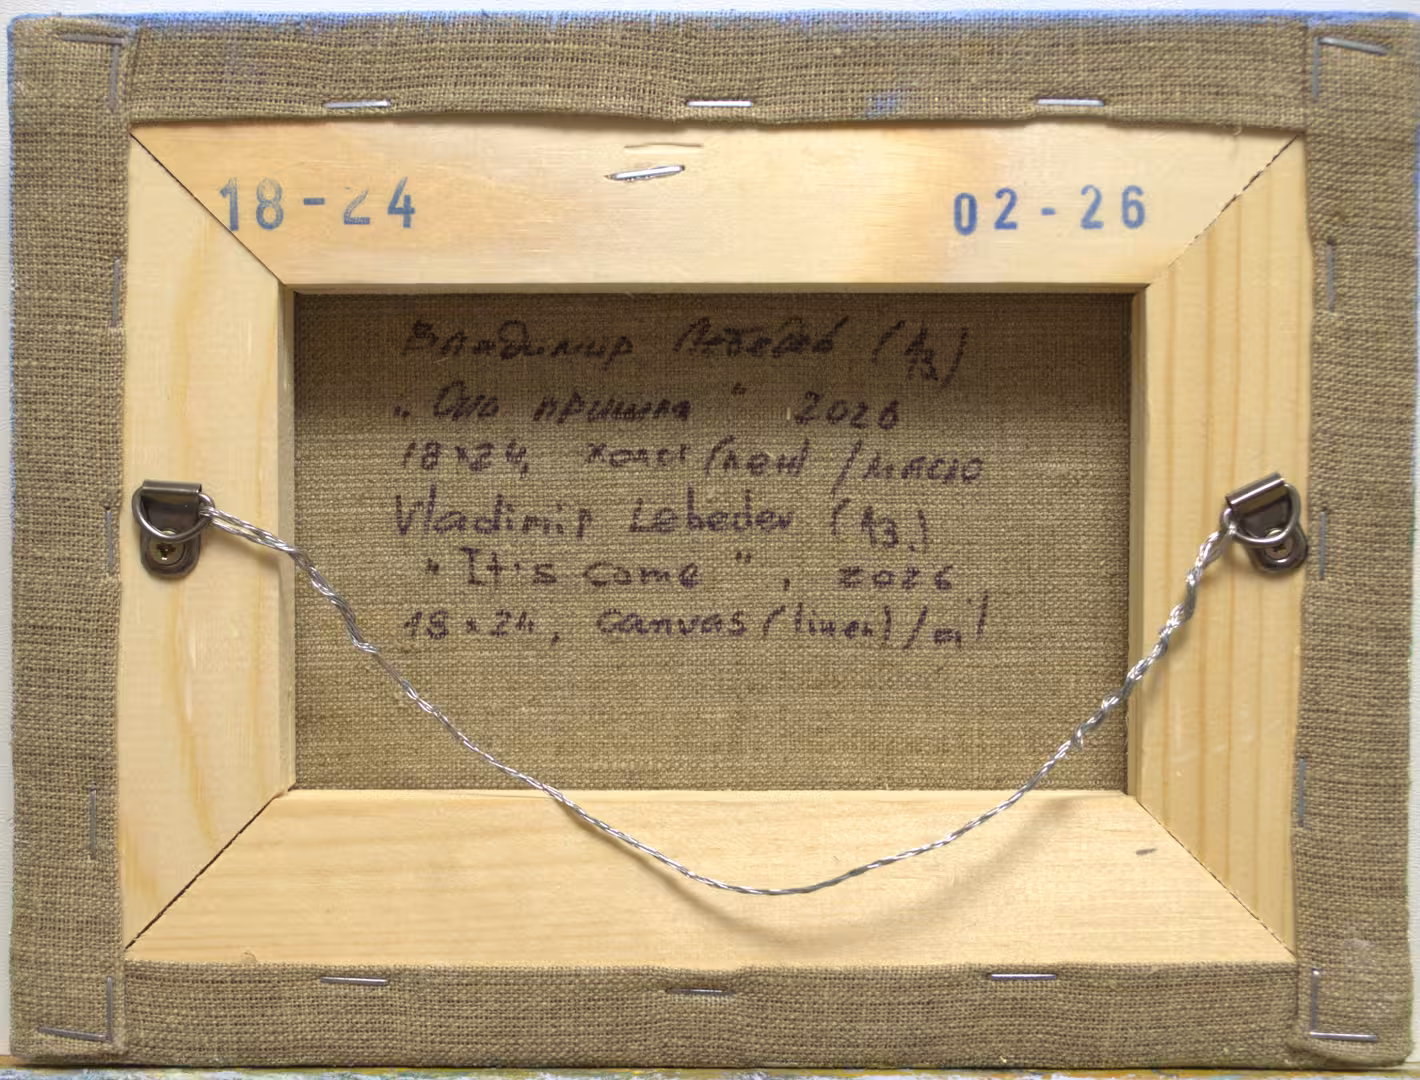 18-24 02-26
Владимир Лебедев (Аз)
„Оно пришло" 2026
18×24, холст (лен) / масло
Vladimir Lebedev (Аз.)
"It's come", 2026
18×24, canvas (linen) / oil